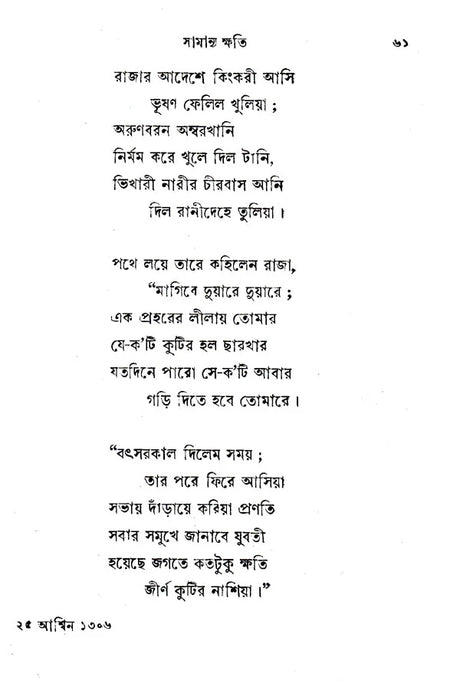 সামান্য ক্ষতি ৬১
রাজার আদেশে কিংকরী আসি
ভূষণ ফেলিল খুলিয়া ;
অরুণবরন অম্বরখানি
নির্মম করে খুলে দিল টানি,
ভিখারী নারীর চীরবাস আনি
দিল রানীদেহে তুলিয়া ।
পথে লয়ে তারে কহিলেন রাজা,
“মাগিবে দুয়ারে দুয়ারে ;
এক প্রহরের লীলায় তোমার
যে-ক’টি কুটির হল ছারখার
যতদিনে পারো সে-ক’টি আবার
গড়ি দিতে হবে তোমারে ।
“বৎসরকাল দিলেম সময় ;
তার পরে ফিরে আসিয়া
সভায় দাঁড়ায়ে করিয়া প্রণতি
সবার সমুখে জানাবে যুবতী
হয়েছে জগতে কতটুকু ক্ষতি
জীর্ণ কুটির নাশিয়া ।”
২৫ আশ্বিন ১৩০৬